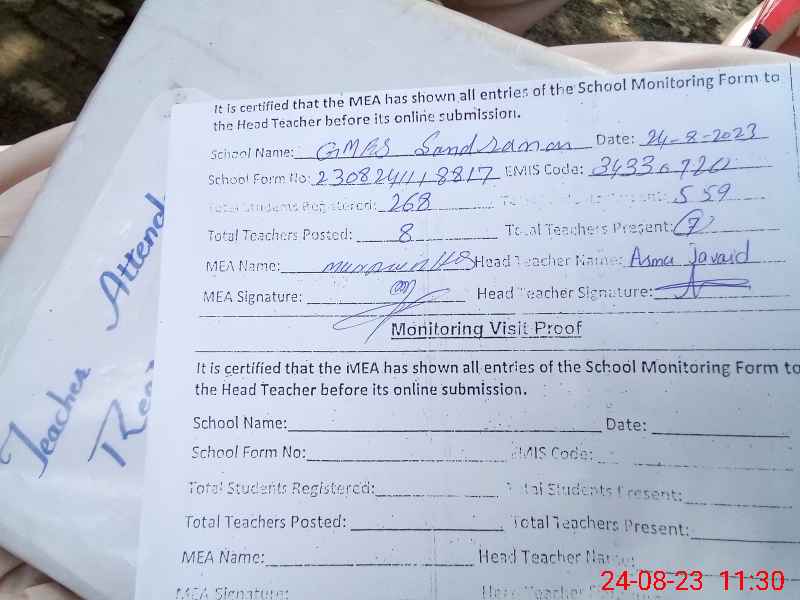 It is certified that the MEA has shown all entries of the School Monitoring Form to
the Head Teacher before its online submission.
School Name: GMPS Date: 24-8-2023
School Form No: 2308241118817 EMIS Code:
Total Students Registered: 268 Total Students Present: 559
Total Teachers Posted: 8 Total Teachers Present: 7
MEA Name: Head Teacher Name: Asma Javaid
MEA Signature: Head Teacher Signature:
Monitoring Visit Proof
It is certified that the MEA has shown all entries of the School Monitoring Form to
the Head Teacher before its online submission.
School Name: Date:
School Form No: EMIS Code:
Total Students Registered: Total Students Present:
Total Teachers Posted: Total Teachers Present:
MEA Name: Head Teacher Name:
MEA Signature: Head Teacher
Teacher Attend
24-08-23 11:30